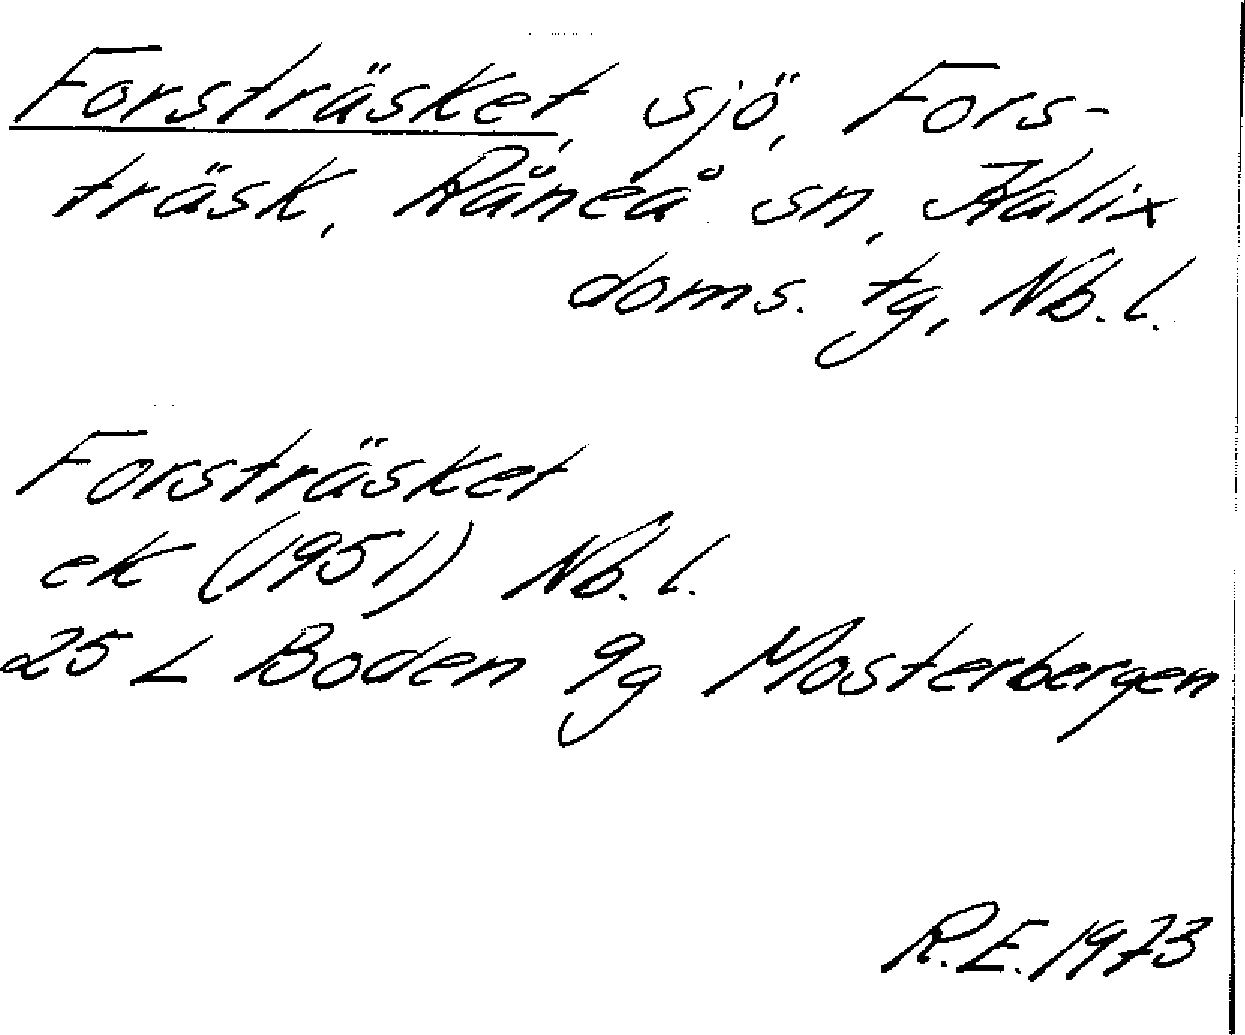 Forsträsket, sjö, Fors-
träsk, Råneå sn, Kalix
doms. tg, Nb. l.
Forsträsket
ek (1951) Nb. l.
25 L Boden 9g Mosterbergen
R.E. 1973